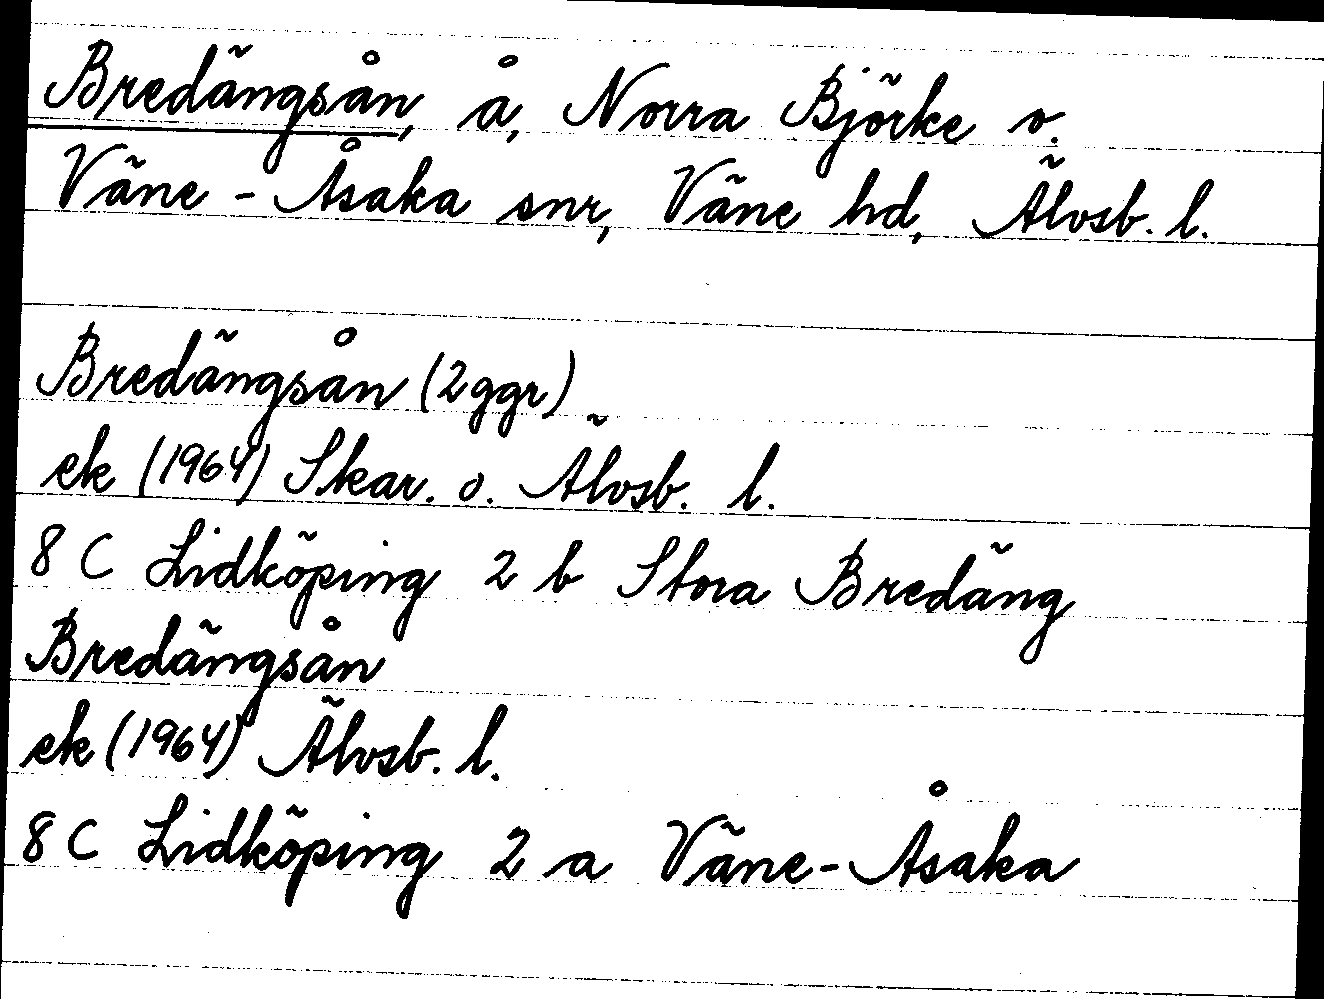 Bredängsån, å, Norra Björke o.
Väne-Åsaka snr, Väne hd, Älvsb. l.
Bredängsån (2ggr)
ek (1964) Skar. o. Älvsb. l.
8 C Lidköping 2 b Stora Bredäng
Bredängsån
ek (1964) Älvsb. l.
8 C Lidköping 2 a Väne-Åsaka